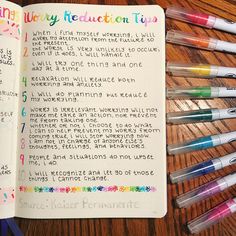 Worry Reduction Tips
1 When I find myself worrying, I will
direct my attention from the future to
the present.
2 The worst is very unlikely to occur;
even if it does, I will handle it.
3 I will try one thing and one
way at a time.
4 Relaxation will reduce both
worrying and anxiety.
5 Will do planning but reduce
my worrying.
6 Worry is irrelevant. Worrying will not
make me take an action, nor prevent
me from taking one.
7 Whether or not I choose to do what
I can to help prevent my worry from
coming true, I will stop worrying now.
8 I am not in charge of anyone else's
thoughts, feelings, and behaviors.
9 People and situations do not upset
me, I do.
I will recognize and let go of those
things I cannot change.
Source: Kaiser Permanente